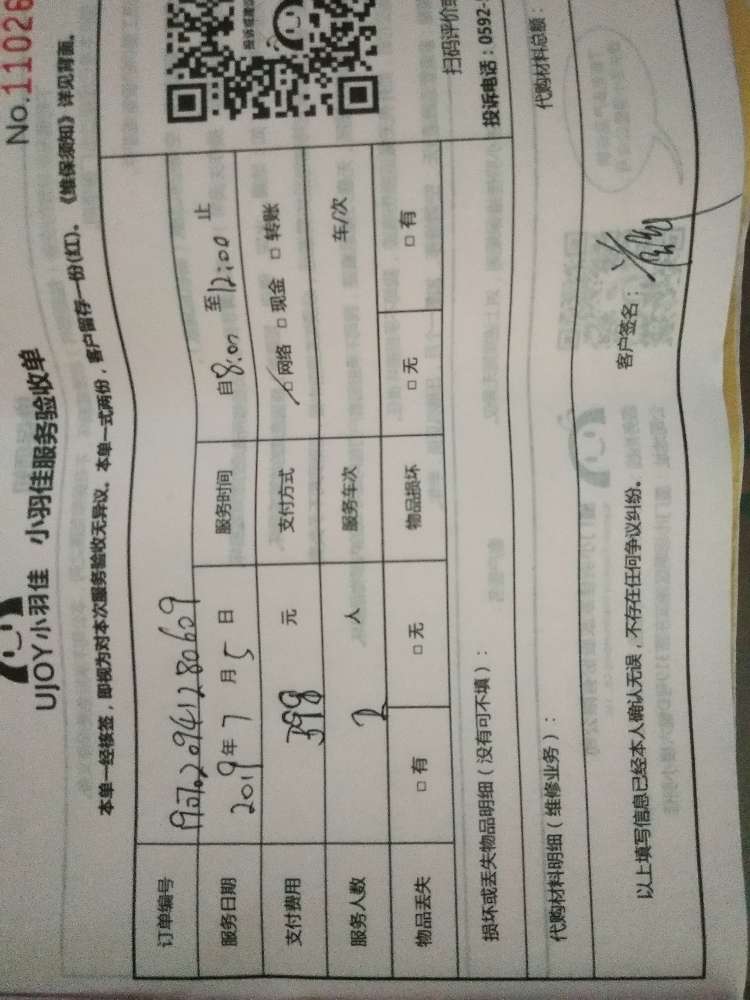 No.11026
UJOY小羽佳 小羽佳服务验收单
本单一经核签，即视为对本次服务验收无异议。本单一式两份，客户留存一份(红)。《维保须知》详见背面。
订单编号 1907020941280609
服务日期 2019年 7 月 5 日 服务时间 自8:00 至12:00 止
支付费用 398 元 支付方式 ☑网络 □现金 □转账
服务人数 2 人 服务车次 车/次
物品丢失 □有 □无 物品损坏 □无 □有
损坏或丢失物品明细（没有可不填）：
扫码评价或
投诉电话：0592-
代购材料明细（维修业务）： 代购材料总额：
以上填写信息已经本人确认无误，不存在任何争议纠纷。 客户签名：